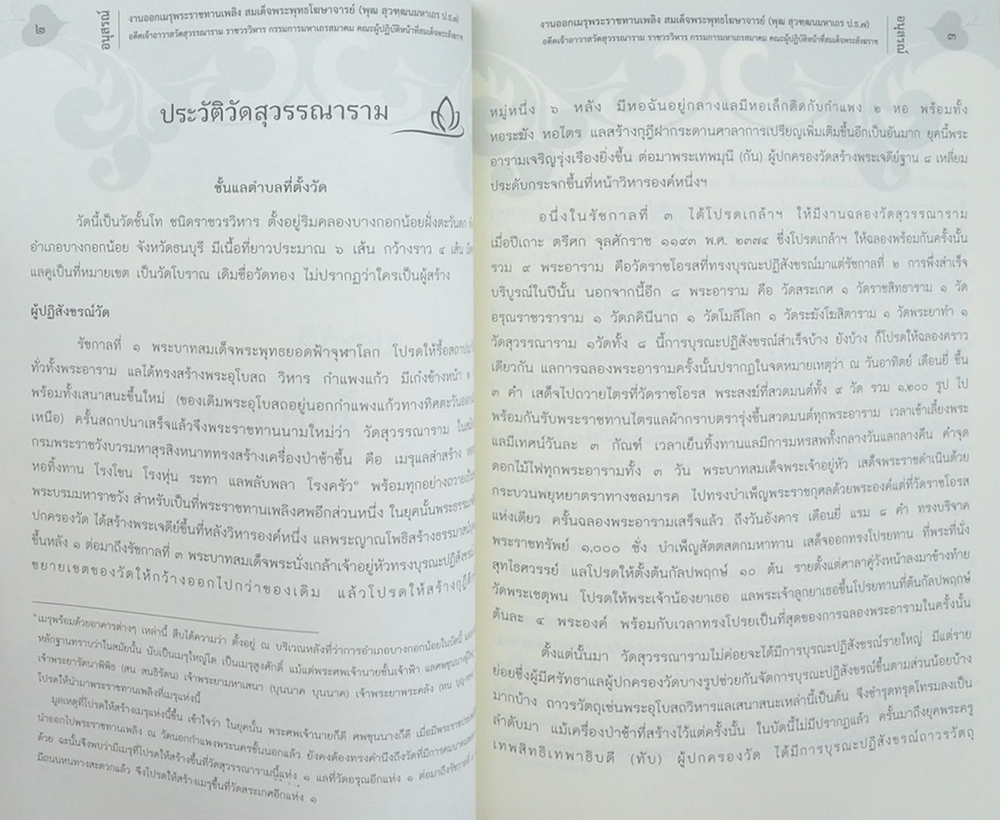 ๒
อนุสรณ์
งานออกเมรุพระราชทานเพลิง สมเด็จพระพุทธโฆษาจารย์ (พุฒ สุวฑฺฒนมหาเถร ป.ธ.๗)
อดีตเจ้าอาวาสวัดสุวรรณาราม ราชวรวิหาร กรรมการมหาเถรสมาคม คณะผู้ปฏิบัติหน้าที่สมเด็จพระสังฆราช
ประวัติวัดสุวรรณาราม
ชั้นแลตำบลที่ตั้งวัด
วัดนี้เป็นวัดชั้นโท ชนิดราชวรวิหาร ตั้งอยู่ริมคลองบางกอกน้อยฝั่งตะวันตก
อำเภอบางกอกน้อย จังหวัดธนบุรี มีเนื้อที่ยาวประมาณ ๖ เส้น กว้างราว ๔ เส้น
แลคูเป็นที่หมายเขต เป็นวัดโบราณ เดิมชื่อวัดทอง ไม่ปรากฏว่าใครเป็นผู้สร้าง
ผู้ปฏิสังขรณ์วัด
รัชกาลที่ ๑ พระบาทสมเด็จพระพุทธยอดฟ้าจุฬาโลก โปรดให้รื้อสถาปนา
ทั่วทั้งพระอาราม แลได้ทรงสร้างพระอุโบสถ วิหาร กำแพงแก้ว มีเก๋งข้างหน้า
พร้อมทั้งเสนาสนะขึ้นใหม่ (ของเดิมพระอุโบสถอยู่นอกกำแพงแก้วทางทิศตะวันออก
เหนือ) ครั้นสถาปนาเสร็จแล้วจึงพระราชทานนามใหม่ว่า วัดสุวรรณาราม
กรมพระราชวังบวรมหาสุรสิงหนาททรงสร้างเครื่องป่าช้าขึ้น คือ เมรุแลสำสร้าง
หอทิ้งทาน โรงโขน โรงหุ่น ระทา แลพลับพลา โรงครัว* พร้อมทุกอย่างถวายเป็น
พระบรมมหาราชวัง สำหรับเป็นที่พระราชทานเพลิงศพอีกส่วนหนึ่ง ในยุคนั้นพระธรรม
ปกครองวัด ได้สร้างพระเจดีย์ขึ้นที่หลังวิหารองค์หนึ่ง แลพระญาณโพธิสร้างธรรมาสน์
ขึ้นหลัง ๑ ต่อมาถึงรัชกาลที่ ๓ พระบาทสมเด็จพระนั่งเกล้าเจ้าอยู่หัวทรงบุรณะปฏิสังขรณ์
ขยายเขตของวัดให้กว้างออกไปกว่าของเดิม แล้วโปรดให้สร้างกุฎี
*เมรุพร้อมด้วยอาคารต่างๆ เหล่านี้ สืบได้ความว่า ตั้งอยู่ ณ บริเวณหลังที่ว่าการอำเภอบางกอกน้อยในบัดนี้
หลักฐานทราบว่าในสมัยนั้น นับเป็นเมรุใหญ่โต เป็นเมรุสูงศักดิ์ แม้แต่พระศพเจ้านายชั้นเจ้าฟ้า แลศพขุนนางผู้ใหญ่
เจ้าพระยารัตนาพิพิธ (สน สนธิรัตน) เจ้าพระยามหาเสนา (บุนนาค บุนนาค) เจ้าพระยาพระคลัง (หน
โปรดให้นำมาพระราชทานเพลิงที่เมรุแห่งนี้
มูลเหตุที่โปรดให้สร้างเมรุแห่งนี้ขึ้น เข้าใจว่า ในยุคนั้น พระศพเจ้านายก็ดี ศพขุนนางก็ดี เมื่อมีพระราชประสงค์
นำออกไปพระราชทานเพลิง ณ วัดนอกกำแพงพระนครชั้นนอกแล้ว ยังคงต้องทรงคำนึงถึงวัดที่มีการคมนาคม
ด้วย ฉะนั้นจึงพบว่ามีเมรุที่โปรดให้สร้างขึ้นที่วัดสุวรรณารามนี้แห่ง ๑ แลที่วัดอรุณอีกแห่ง ๑ ต่อมาถึงรัชกาลที่
มีถนนหนทางสะดวกแล้ว จึงโปรดให้สร้างเมรุขึ้นที่วัดสระเกศอีกแห่ง ๑
งานออกเมรุพระราชทานเพลิง สมเด็จพระพุทธโฆษาจารย์ (พุฒ สุวฑฺฒนมหาเถร ป.ธ.๗)
อดีตเจ้าอาวาสวัดสุวรรณาราม ราชวรวิหาร กรรมการมหาเถรสมาคม คณะผู้ปฏิบัติหน้าที่สมเด็จพระสังฆราช
อนุสรณ์
๓
หมู่หนึ่ง ๖ หลัง มีหอฉันอยู่กลางแลมีหอเล็กติดกับกำแพง ๒ หอ พร้อมทั้ง
หอระฆัง หอไตร แลสร้างกุฎีฝากระดานศาลาการเปรียญเพิ่มเติมขึ้นอีกเป็นอันมาก ยุคนี้พระ
อารามเจริญรุ่งเรืองยิ่งขึ้น ต่อมาพระเทพมุนี (กัน) ผู้ปกครองวัดสร้างพระเจดีย์ฐาน ๘ เหลี่ยม
ประดับกระจกขึ้นที่หน้าวิหารองค์หนึ่งฯ
อนึ่งในรัชกาลที่ ๓ ได้โปรดเกล้าฯ ให้มีงานฉลองวัดสุวรรณาราม
เมื่อปีเถาะ ตรีศก จุลศักราช ๑๑๙๓ พ.ศ. ๒๓๗๔ ซึ่งโปรดเกล้าฯ ให้ฉลองพร้อมกันครั้งนั้น
รวม ๙ พระอาราม คือวัดราชโอรสที่ทรงบุรณะปฏิสังขรณ์มาแต่รัชกาลที่ ๒ การพึ่งสำเร็จ
บริบูรณ์ในปีนั้น นอกจากนี้อีก ๘ พระอาราม คือ วัดสระเกศ ๑ วัดราชสิทธาราม ๑ วัด
อรุณราชวราราม ๑ วัดภคินีนาถ ๑ วัดโมลีโลก ๑ วัดระฆังโฆสิตาราม ๑ วัดพระยาทำ ๑
วัดสุวรรณาราม ๑วัดทั้ง ๘ นี้การบุรณะปฏิสังขรณ์สำเร็จบ้าง ยังบ้าง ก็โปรดให้ฉลองคราว
เดียวกัน แลการฉลองพระอารามครั้งนั้นปรากฏในจดหมายเหตุว่า ณ วันอาทิตย์ เดือนยี่ ขึ้น
๓ ค่ำ เสด็จไปถวายไตรที่วัดราชโอรส พระสงฆ์ที่สวดมนต์ทั้ง ๙ วัด รวม ๑,๒๐๐ รูป ไป
พร้อมกันรับพระราชทานไตรแลผ้ากราบตรารุ่งขึ้นสวดมนต์ทุกพระอาราม เวลาเช้าเลี้ยงพระ
แลมีเทศน์วันละ ๓ กัณฑ์ เวลาเย็นทิ้งทานแลมีการมหรสพทั้งกลางวันแลกลางคืน ค่ำจุด
ดอกไม้ไฟทุกพระอารามทั้ง ๓ วัน พระบาทสมเด็จพระเจ้าอยู่หัว เสด็จพระราชดำเนินด้วย
กระบวนพยุหยาตราทางชลมารค ไปทรงบำเพ็ญพระราชกุศลด้วยพระองค์แต่ที่วัดราชโอรส
แห่งเดียว ครั้นฉลองพระอารามเสร็จแล้ว ถึงวันอังคาร เดือนยี่ แรม ๘ ค่ำ ทรงบริจาค
พระราชทรัพย์ ๑,๐๐๐ ชั่ง บำเพ็ญสัตตสดกมหาทาน เสด็จออกทรงโปรยทาน ที่พระที่นั่ง
สุทไธศวรรย์ แลโปรดให้ตั้งต้นกัลปพฤกษ์ ๑๐ ต้น รายตั้งแต่ศาลาคู่วังหน้าลงมาข้างท้าย
วัดพระเชตุพน โปรดให้พระเจ้าน้องยาเธอ แลพระเจ้าลูกยาเธอขึ้นโปรยทานที่ต้นกัลปพฤกษ์
ต้นละ ๔ พระองค์ พร้อมกับเวลาทรงโปรยเป็นที่สุดของการฉลองพระอารามในครั้งนั้น
ตั้งแต่นั้นมา วัดสุวรรณารามไม่ค่อยจะได้มีการบุรณะปฏิสังขรณ์รายใหญ่ มีแต่ราย
ย่อยซึ่งผู้มีศรัทธาแลผู้ปกครองวัดบางรูปช่วยกันจัดการบุรณะปฏิสังขรณ์ขึ้นตามส่วนน้อยบ้าง
มากบ้าง ถาวรวัตถุเช่นพระอุโบสถวิหารแลเสนาสนะเหล่านี้เป็นต้น จึงชำรุดทรุดโทรมลงเป็น
ลำดับมา แม้เครื่องป่าช้าที่สร้างไว้แต่ครั้งนั้น ในบัดนี้ไม่มีปรากฏแล้ว ครั้นมาถึงยุคพระครู
เทพสิทธิเทพาธิบดี (ทับ) ผู้ปกครองวัด ได้มีการบุรณะปฏิสังขรณ์ถาวรวัตถุ